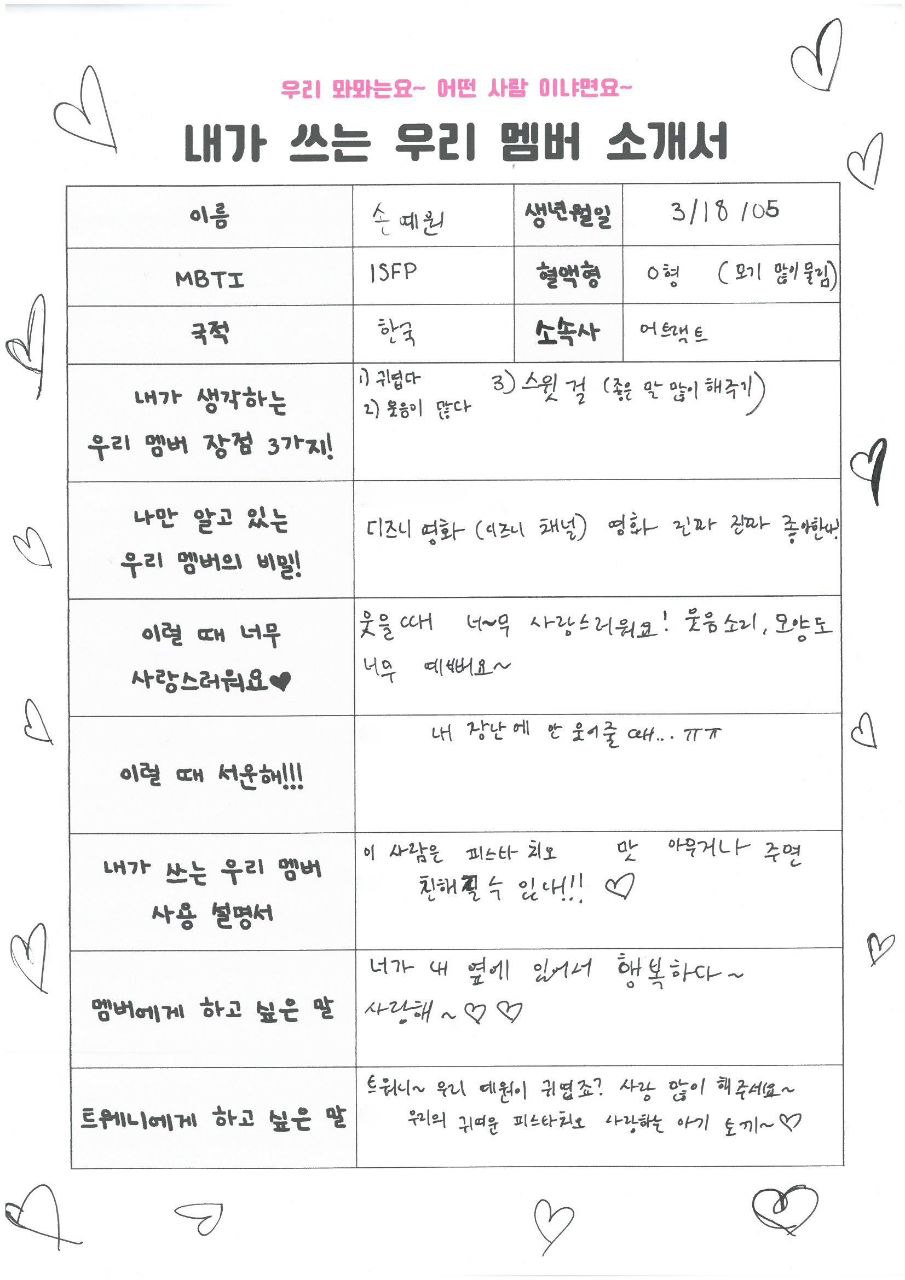 우리 뫄뫄는요~ 어떤 사람 이냐면요~
내가 쓰는 우리 멤버 소개서
이름
손예원
생년월일
3/18/05
MBTI
ISFP
혈액형
O형 (모기 많이 물림)
국적
한국
소속사
어트랙트
내가 생각하는
우리 멤버 장점 3가지!
1) 귀엽다
2) 웃음이 많다
3) 스윗 걸 (좋은 말 많이 해주기)
나만 알고 있는
우리 멤버의 비밀!
디즈니 영화 (디즈니 채널) 영화 진짜 진짜 좋아한다!
이럴 때 너무
사랑스러워요♥
웃을때 너~무 사랑스러워요! 웃음소리, 모양도
너무 예뻐요~
이럴 때 서운해!!!
내 장난에 안 웃어줄 때... ㅠㅠ
내가 쓰는 우리 멤버
사용 설명서
이 사람은 피스타치오 맛 아무거나 주면
친해질 수 있대!!! ♡
멤버에게 하고 싶은 말
너가 내 옆에 있어서 행복하다~
사랑해~♡♡
트웨니에게 하고 싶은 말
트웨니~ 우리 예원이 귀엽죠? 사랑 많이 해주세요~
우리의 귀여운 피스타치오 사랑하는 아기 토끼~♡